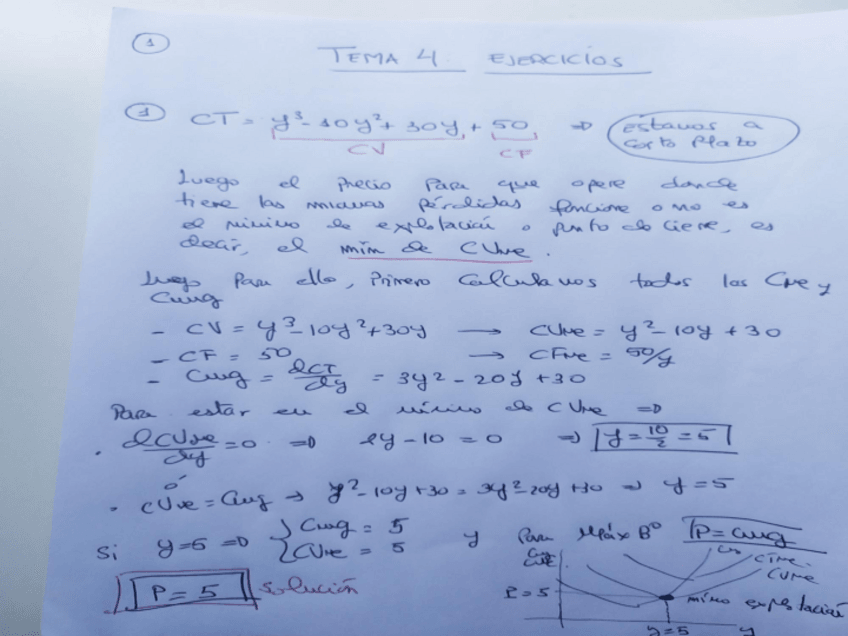 1
TEMA 4 EJERCICIOS
1 CT = y³-10y²+30y + 50 => estamos a corto plazo
CV CF
Luego el precio para que opere donde
tiene las mismas pérdidas funcione o no es
el mínimo de explotación o punto de cierre, es
decir, el mín de CVme.
Luego para ello, primero calculamos todos los Cme y
Cmg
- CV = y³-10y²+30y → CVme = y²-10y+30
- CF = 50 → CFme = 50/y
- Cmg = dCT/dy = 3y²-20y+30
Para estar en el mínimo de CVme =>
· dCVme/dy = 0 => 2y-10 = 0 => y = 10/2 = 5
ó
· CVme = Cmg → y²-10y+30 = 3y²-20y+30 => y = 5
Si y=5 => { Cmg = 5 CVme = 5 y para Máx Bº P = Cmg
P = 5 Solución
CTme
CVme
P=5 mín explotación
y=5 y